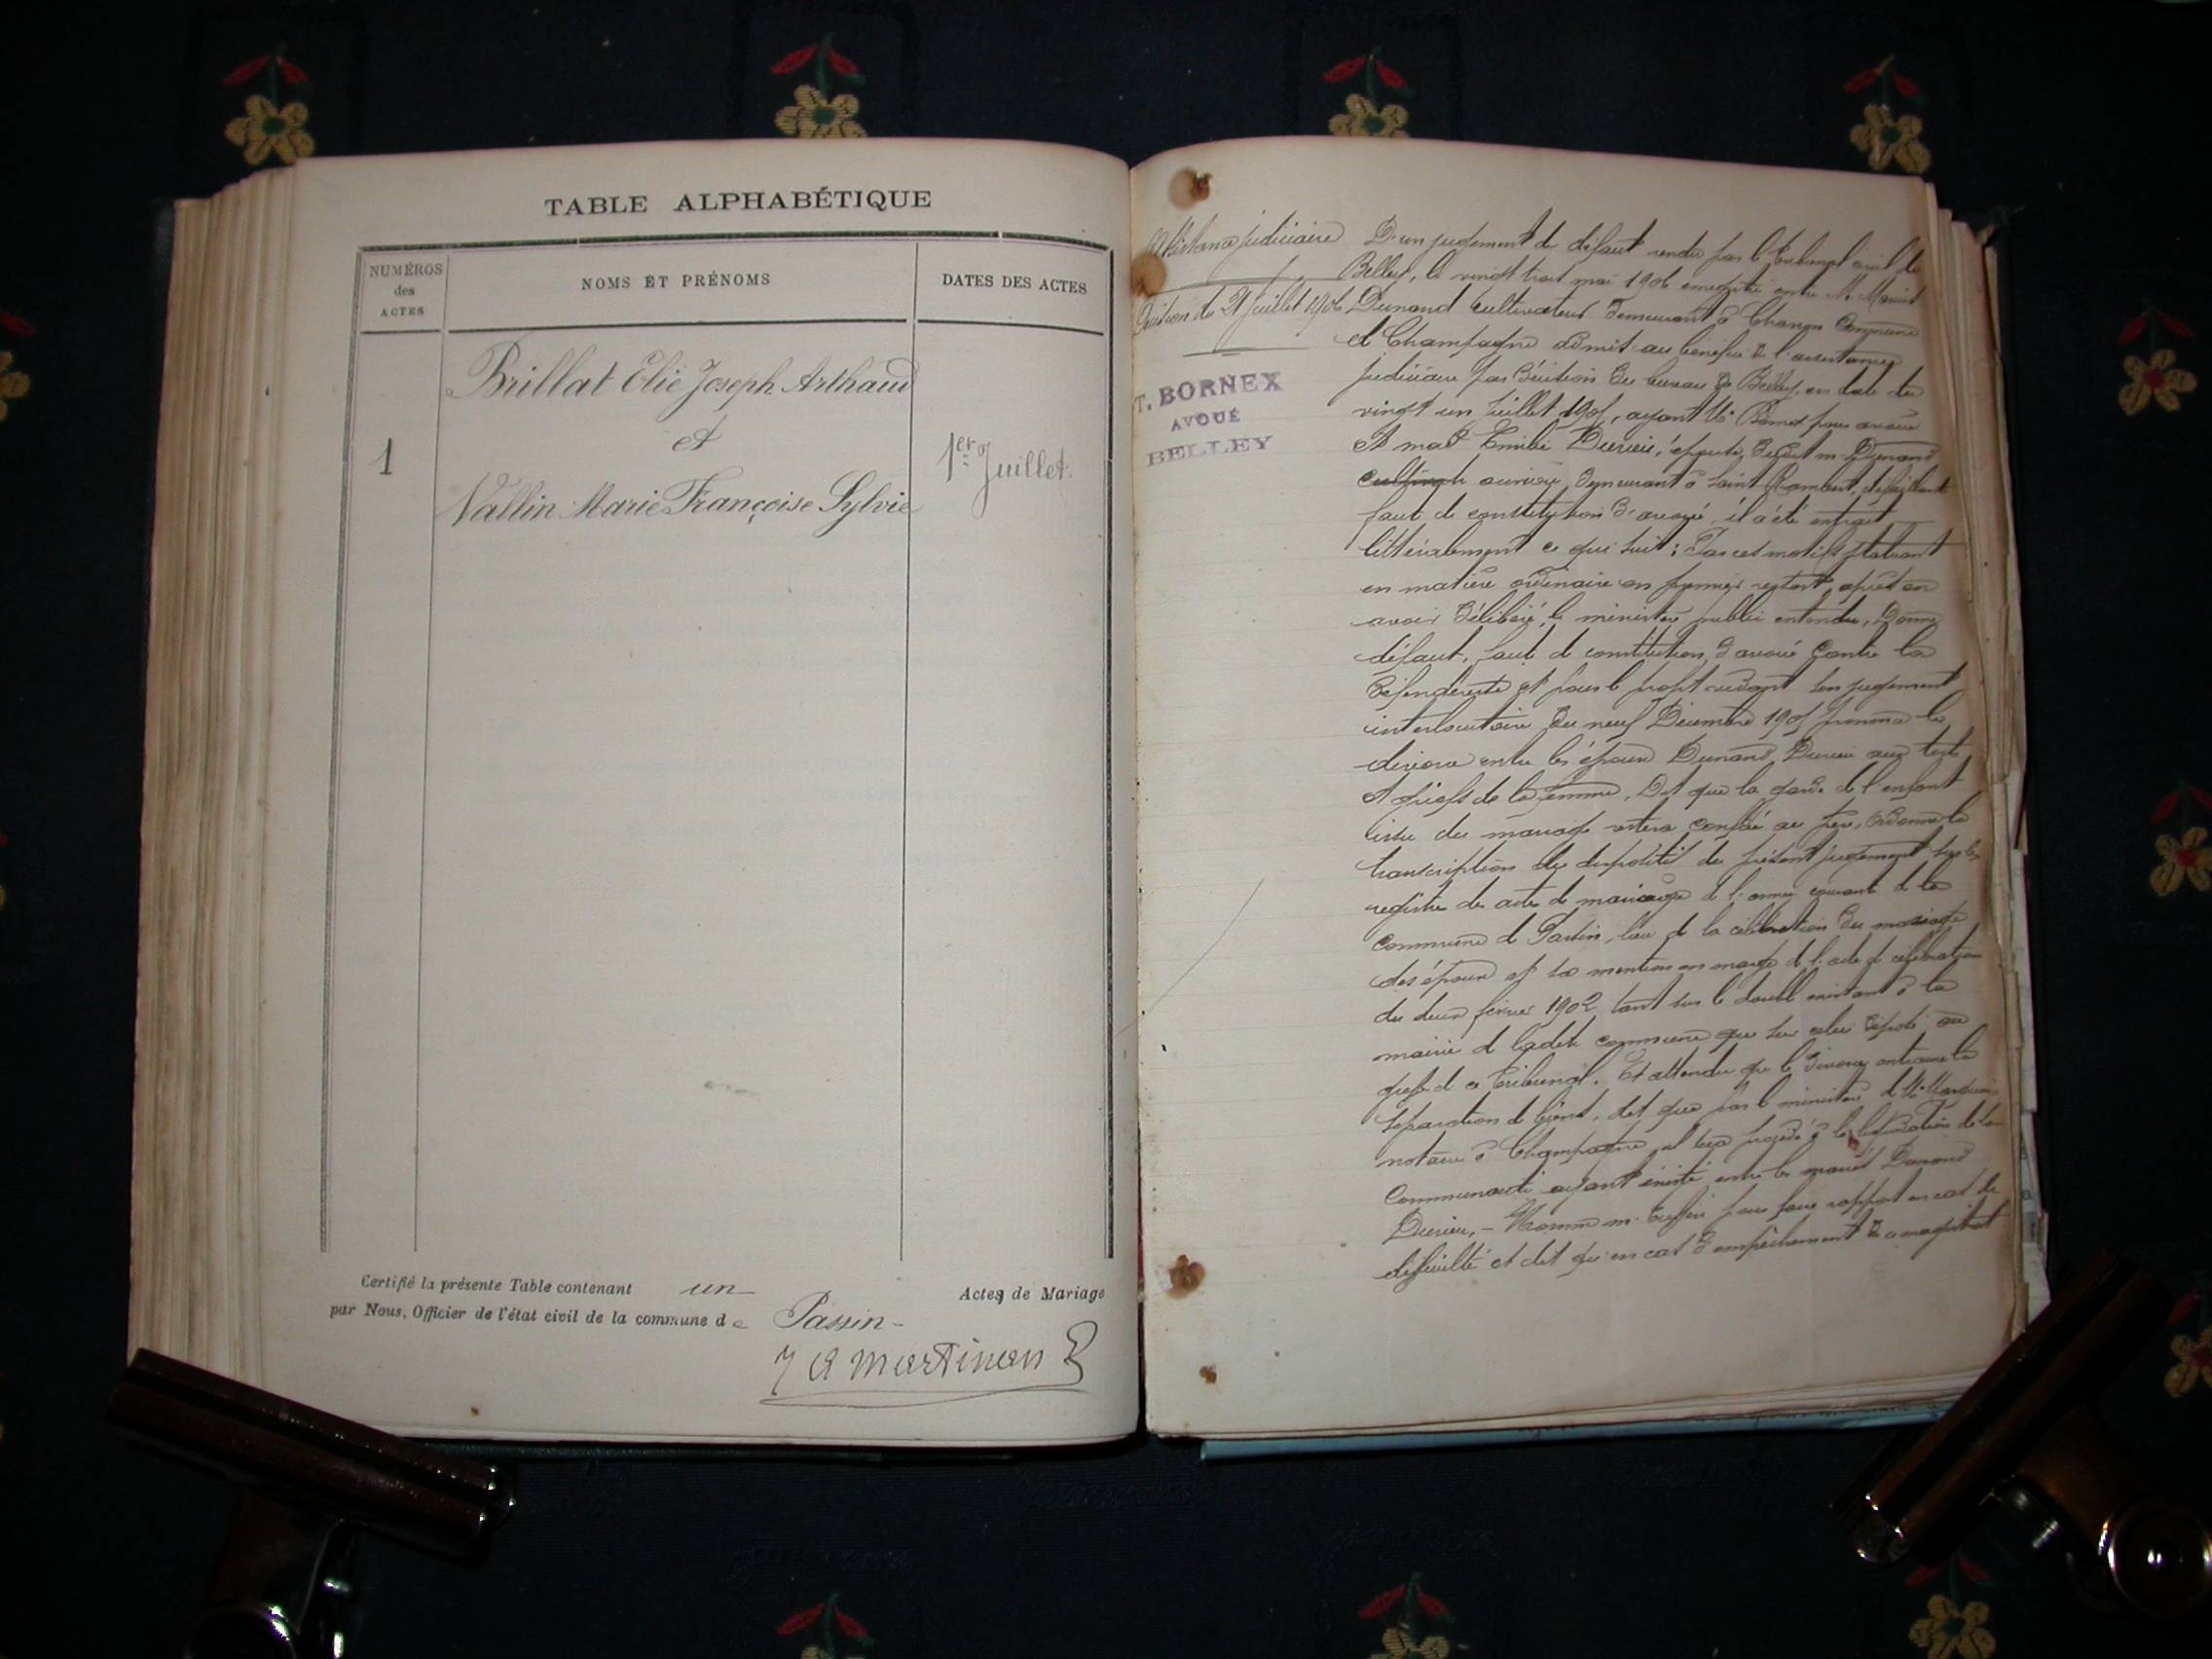 TABLE ALPHABÉTIQUE
NUMÉROS
des
ACTES
NOMS ET PRÉNOMS
DATES DES ACTES
Brillat Elie Joseph Arthaud
et
1
1er Juillet.
Vallin Marie Françoise Sylvie
Certifié la présente Table contenant un Actes de Mariage
par Nous, Officier de l'état civil de la commune de Passin-
J A Martinan
judiciaire
Juillet 1906
T. BORNEX
AVOUÉ
BELLEY
D'un jugement de défaut rendu par le Tribunal civil de
Belley, le vingt huit mai 1906 enregistré entre M. Marius
Dunand cultivateur demeurant à Commune
de Champagne admis au bénéfice de l'assistance
judiciaire par décision du bureau de Belley en date du
vingt un juillet 190 , ayant Me Bornex pour avoué
et mad Emilie épouse de m. Dunand
ouvrière demeurant à Saint Rambert, défaillante
faut de constitution d'avoué, il a été extrait
littéralement ce qui suit : Par ces motifs statuant
en matière ordinaire en premier ressort, après en
avoir délibéré, le ministère public entendu, Donne
défaut, faut de constitution d'avoué contre la
défenderesse et pour le profit vidant son jugement
interlocutoire du neuf Décembre 190 prononce le
divorce entre les époux Dunand aux torts
et griefs de la femme, Dit que la garde de l'enfant
issu du mariage restera confié au père, ordonne la
transcription du dispositif du présent jugement sur les
registre des actes de mariage de l'année courante de la
commune de Passin, lieu de la célébration du mariage
des époux et sa mention en marge de l'acte de célébration
du deux février 1902 tant sur le double existant à la
mairie de ladite commune que sur celui déposé au
greffe de ce Tribunal. Et attendu que le divorce entraine la
séparation de biens, dit que par le ministère de Me
notaire à Champagne il sera procédé à la liquidation de la
Communauté ayant existé entre les mariés Dunand
Nomme m. pour faire rapport en cas de
difficulté et dit qu'en cas d'empêchement de ce magistrat